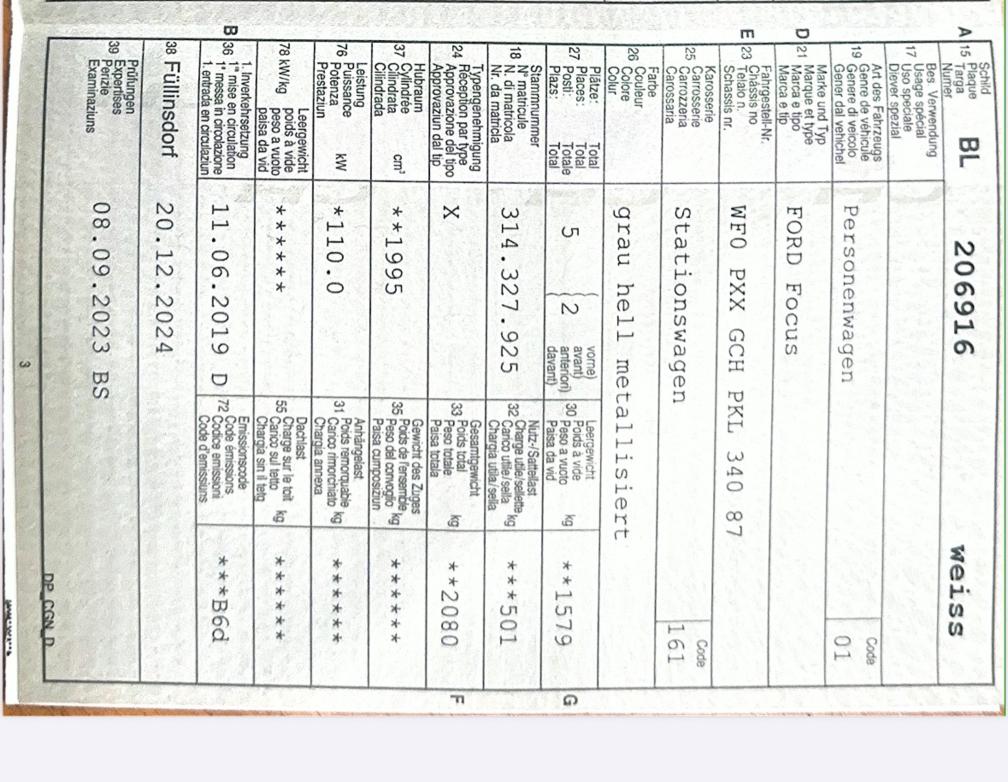 A 15 Schild
Plaque
Targa
Numer
BL 206916 weiss
17 Bes. Verwendung
Usage spécial
Uso speciale
Diever spezial
19 Art des Fahrzeugs
Genre de véhicule
Genere di veicolo
Gener dal vehichel
Personenwagen
Code
01
D 21 Marke und Typ
Marque et type
Marca e tipo
Marca e tip
FORD Focus
E 23 Fahrgestell-Nr.
Châssis no
Telaio n.
Schassis nr.
WF0 PXX GCH PKL 340 87
25 Karosserie
Carrosserie
Carrozzeria
Carossaria
Stationswagen
Code
161
26 Farbe
Couleur
Colore
Colur
grau hell metallisiert
27 Plätze: Total
Places: Total
Posti: Totale
Plazs: Total
5
2
vorne)
avant)
anteriori)
davant)
30 Leergewicht
Poids à vide
Peso a vuoto kg
Paisa da vid
**1579
G
18 Stammnummer
N° matricule
N. di matricola
Nr. da matricla
314.327.925
32 Nutz-/Sattellast
Charge utile/sellette
Carico utile/sella kg
Chargia utila/sella
***501
24 Typengenehmigung
Réception par type
Approvazione del tipo
Approvaziun dal tip
X
33 Gesamtgewicht
Poids total
Peso totale kg
Paisa totala
**2080
F
37 Hubraum
Cylindrée
Cilindrata cm³
Cilindrada
**1995
35 Gewicht des Zuges
Poids de l'ensemble
Peso del convoglio kg
Paisa cumposiziun
******
76 Leistung
Puissance
Potenza kW
Prestaziun
*110.0
31 Anhängelast
Poids remorquable
Carico rimorchiato kg
Chargia annexa
******
78 kW/kg Leergewicht
poids à vide
peso a vuoto
paisa da vid
******
55 Dachlast
Charge sur le toit
Carico sul tetto kg
Chargia sin il tetg
******
B 36 1. Inverkehrsetzung
1re mise en circulation
1a messa in circolazione
1. entrada en circulaziun
11.06.2019 D
72 Emissionscode
Code émissions
Codice emissioni
Code d'emissiuns
***B6d
38 Füllinsdorf 20.12.2024
39 Prüfungen
Expertises
Perizie
Examinaziuns
08.09.2023 BS
3
DP_CGN_D